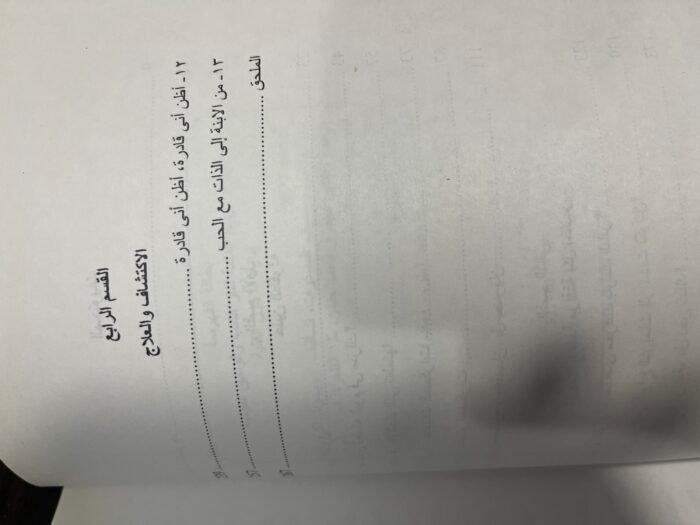 القسم الرابع
الاكتشاف والعلاج
١٢ـ أظن أنى قادرة، أظن أنى قادرة
١٣ـ من الابنة إلى الذات مع الحب
الملحق